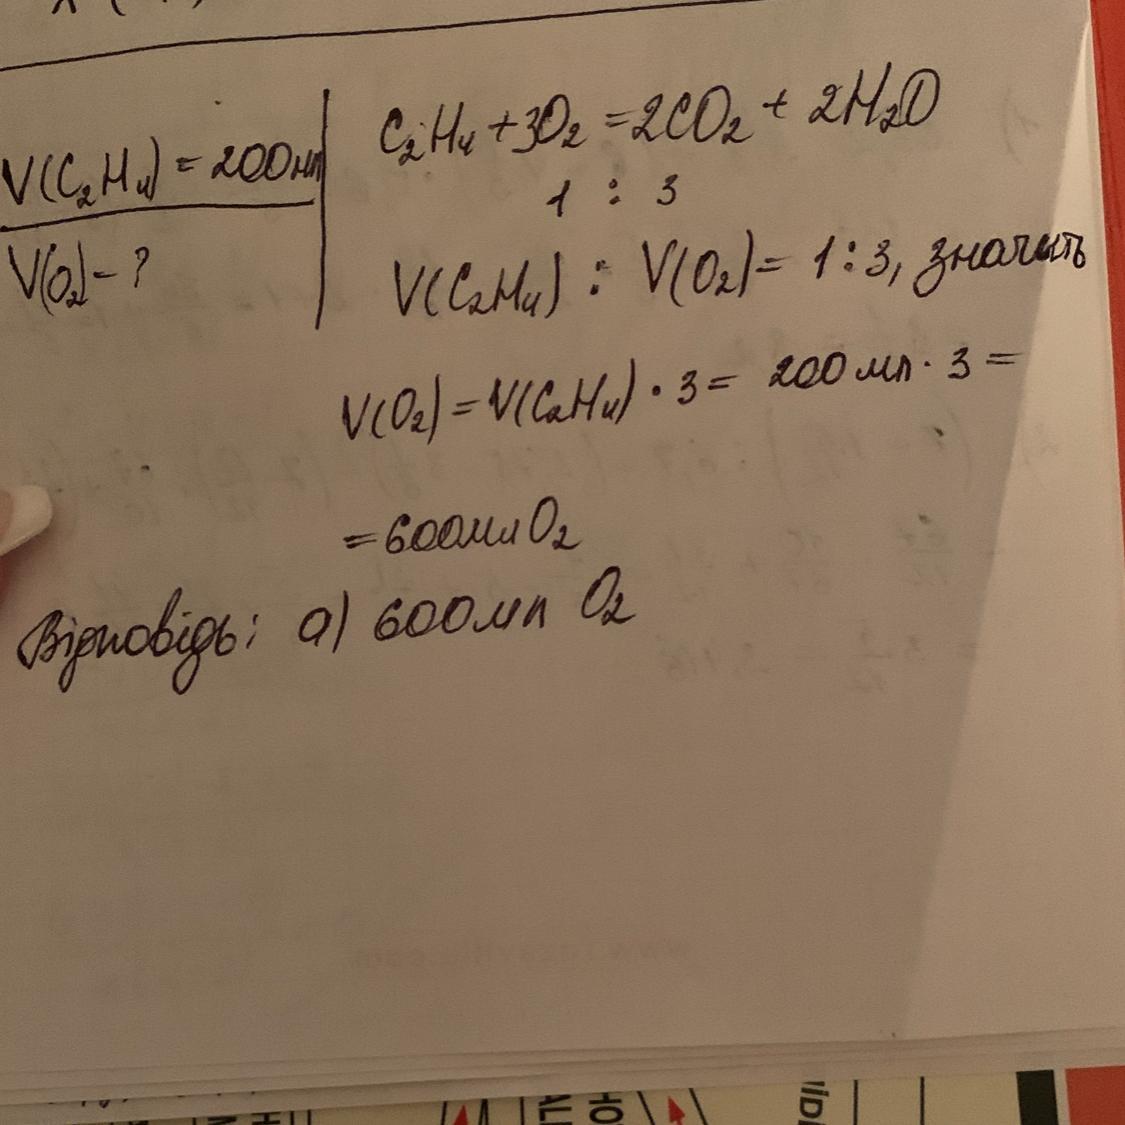 V(C₂H₄) = 200мл
V(O₂) - ?
C₂H₄ + 3O₂ = 2CO₂ + 2H₂O
1 : 3
V(C₂H₄) : V(O₂) = 1:3, значить
V(O₂) = V(C₂H₄) · 3 = 200 мл · 3 =
= 600мл O₂
Відповідь: а) 600мл O₂